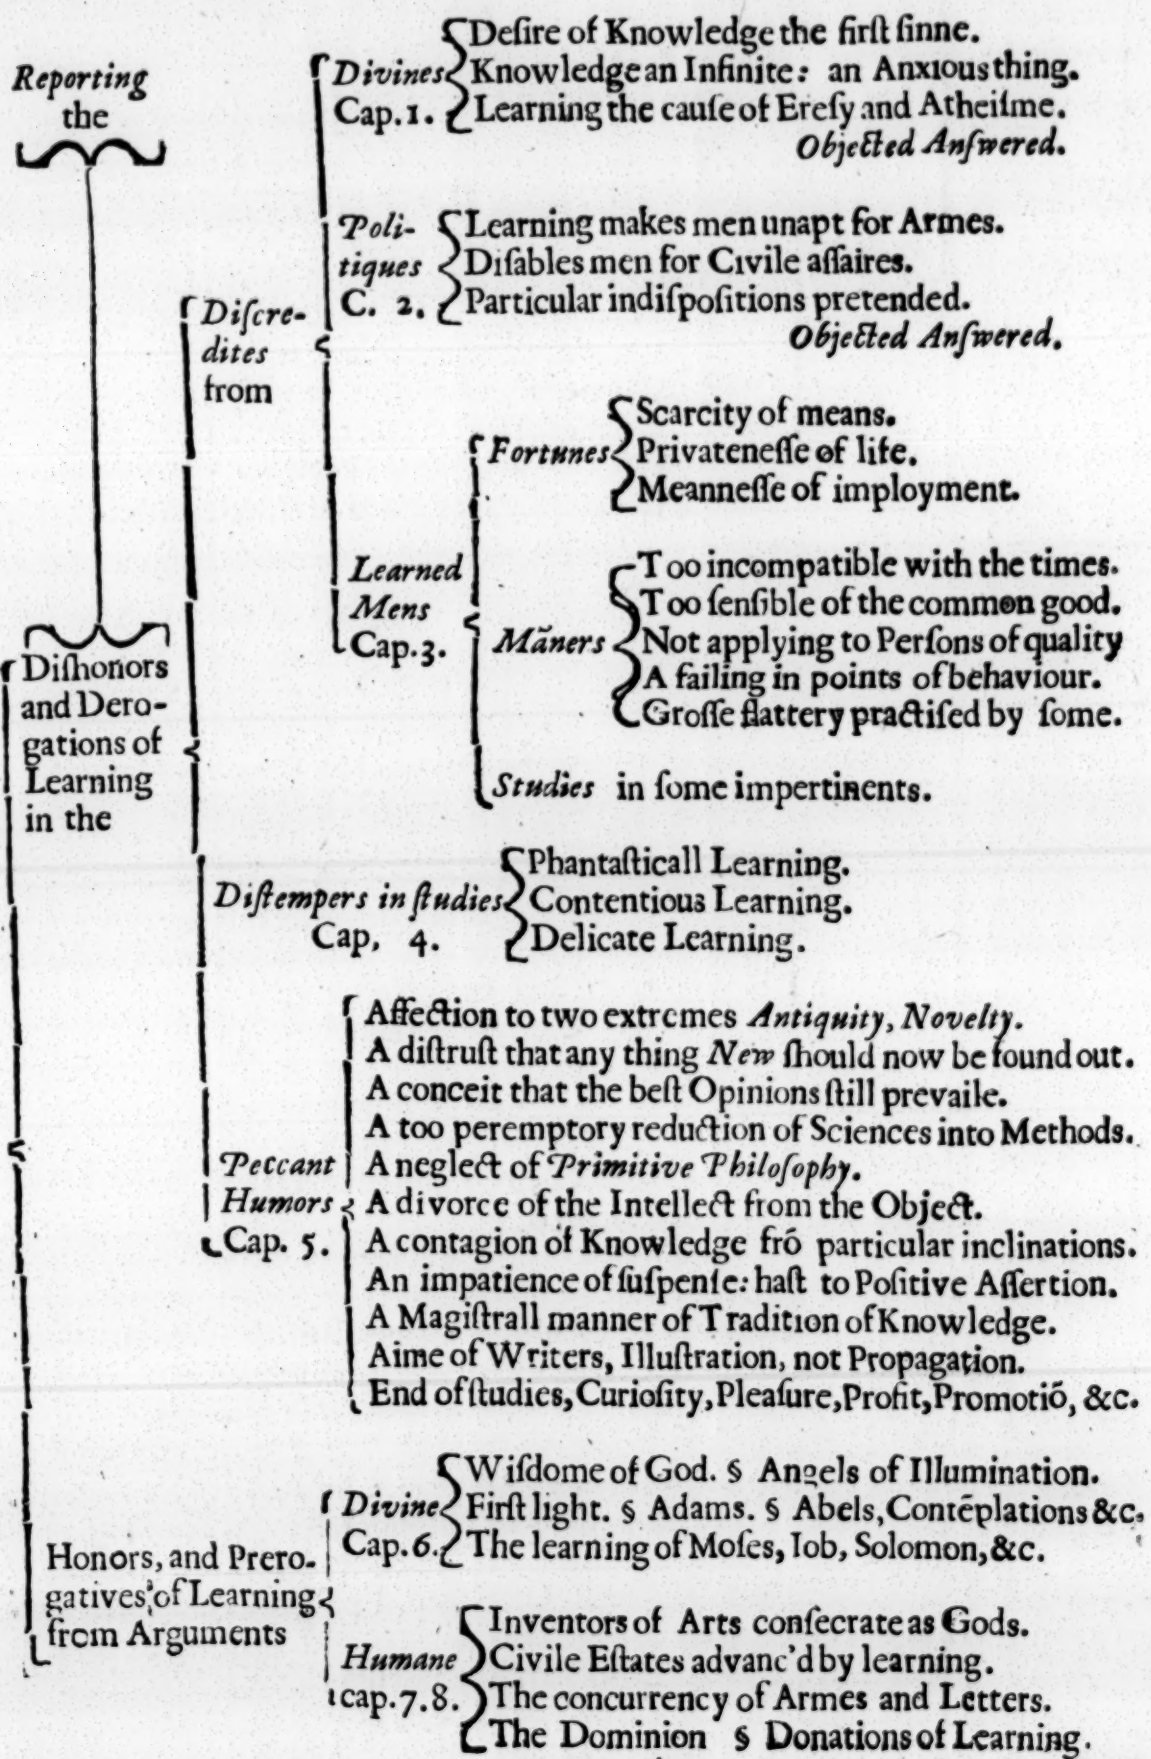 Reporting
the
Diſhonors
and Dero-
gations of
Learning
in the
Diſcre-
dites
from
Divines
Cap.1.
Deſire of Knowledge the firſt ſinne.
Knowledge an Infinite: an Anxious thing.
Learning the cauſe of Ereſy and Atheiſme.
Objected Anſwered.
Poli-
tiques
C. 2.
Learning makes men unapt for Armes.
Diſables men for Civile aſſaires.
Particular indiſpoſitions pretended.
Objected Anſwered.
Learned
Mens
Cap.3.
Fortunes
Scarcity of means.
Privateneſſe of life.
Meanneſſe of imployment.
Mãners
Too incompatible with the times.
Too ſenſible of the common good.
Not applying to Perſons of quality
A failing in points of behaviour.
Groſſe flattery practiſed by ſome.
Studies in ſome impertinents.
Diſtempers in ſtudies
Cap, 4.
Phantaſticall Learning.
Contentious Learning.
Delicate Learning.
Peccant
Humors
Cap. 5.
Affection to two extremes Antiquity, Novelty.
A diſtruſt that any thing New ſhould now be found out.
A conceit that the beſt Opinions ſtill prevaile.
A too peremptory reduction of Sciences into Methods.
A neglect of Primitive Philoſophy.
A divorce of the Intellect from the Object.
A contagion of Knowledge frõ particular inclinations.
An impatience of ſuſpenſe: haſt to Poſitive Aſſertion.
A Magiſtrall manner of Tradition of Knowledge.
Aime of Writers, Illuſtration, not Propagation.
End of ſtudies, Curioſity, Pleaſure, Profit, Promotiõ, &c.
Honors, and Prero-
gatives, of Learning
from Arguments
Divine
Cap.6.
Wiſdome of God. § Angels of Illumination.
Firſt light. § Adams. § Abels, Contẽplations &c.
The learning of Moſes, Iob, Solomon, &c.
Humane
cap.7.8.
Inventors of Arts conſecrate as Gods.
Civile Eſtates advanc'd by learning.
The concurrency of Armes and Letters.
The Dominion § Donations of Learning.